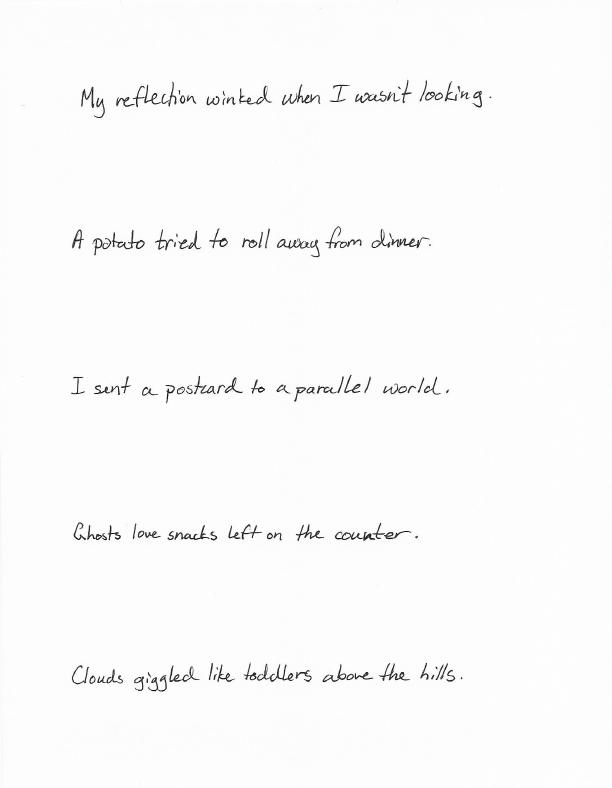 My reflection winked when I wasn't looking.
A potato tried to roll away from dinner.
I sent a postcard to a parallel world.
Ghosts love snacks left on the counter.
Clouds giggled like toddlers above the hills.